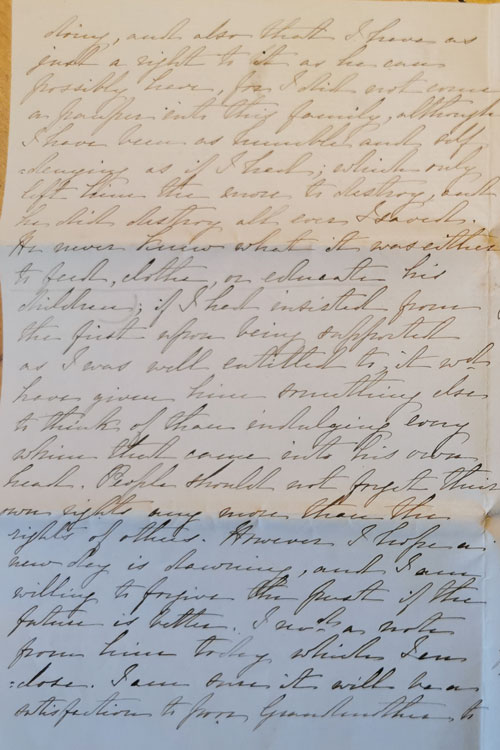 doing, and also that I have as
just a right to it as he can
possibly have, for I did not come
a pauper into this family, although
I have been as humble and self
=denying as if I had; which only
left him the more to destroy, and
he did destroy all ever I saved.
He never knew what it was either
to feed, clothe, or educate his
children; if I had insisted from
the first upon being supported
as I was well entitled to, it wd.
have given him something else
to think of than indulging every
whim that came into his own
head. People should not forget their
own rights any more than the
rights of others. However I hope a
new day is dawning, and I am
willing to forgive the past if the
future is better. I recd. a note
from him today which I en
=close. I am sure it will be a
satisfaction to poor Grandmother to